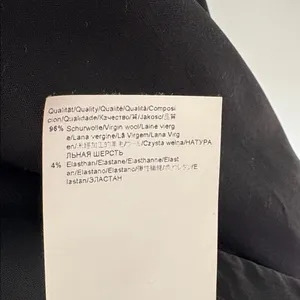 Qualität/Quality/Qualité/Qualità/Composi
cion/Qualidade/Качество/質/Jakość/品質
96% Schurwolle/Virgin wool/Laine vierg
e/Lana vergine/Lã Virgem/Lana Virg
en/ウール/Czysta wełna/НАТУРА
ЛЬНАЯ ШЕРСТЬ
4% Elasthan/Elastane/Elasthanne/Elast
an/Elastano/Elastano/弹性纤维/E
lastan/ЭЛАСТАН